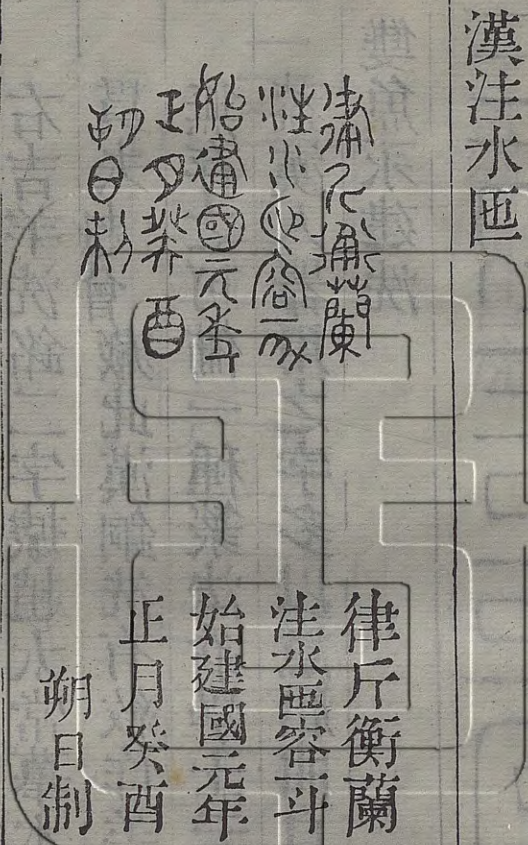 漢注水匜
律斤衡蘭
注水匜容一斗
始建國元年
正月癸酉
朔日制
律斤衡蘭
注水匜容一斗
始建國元年
正月癸酉
朔日制